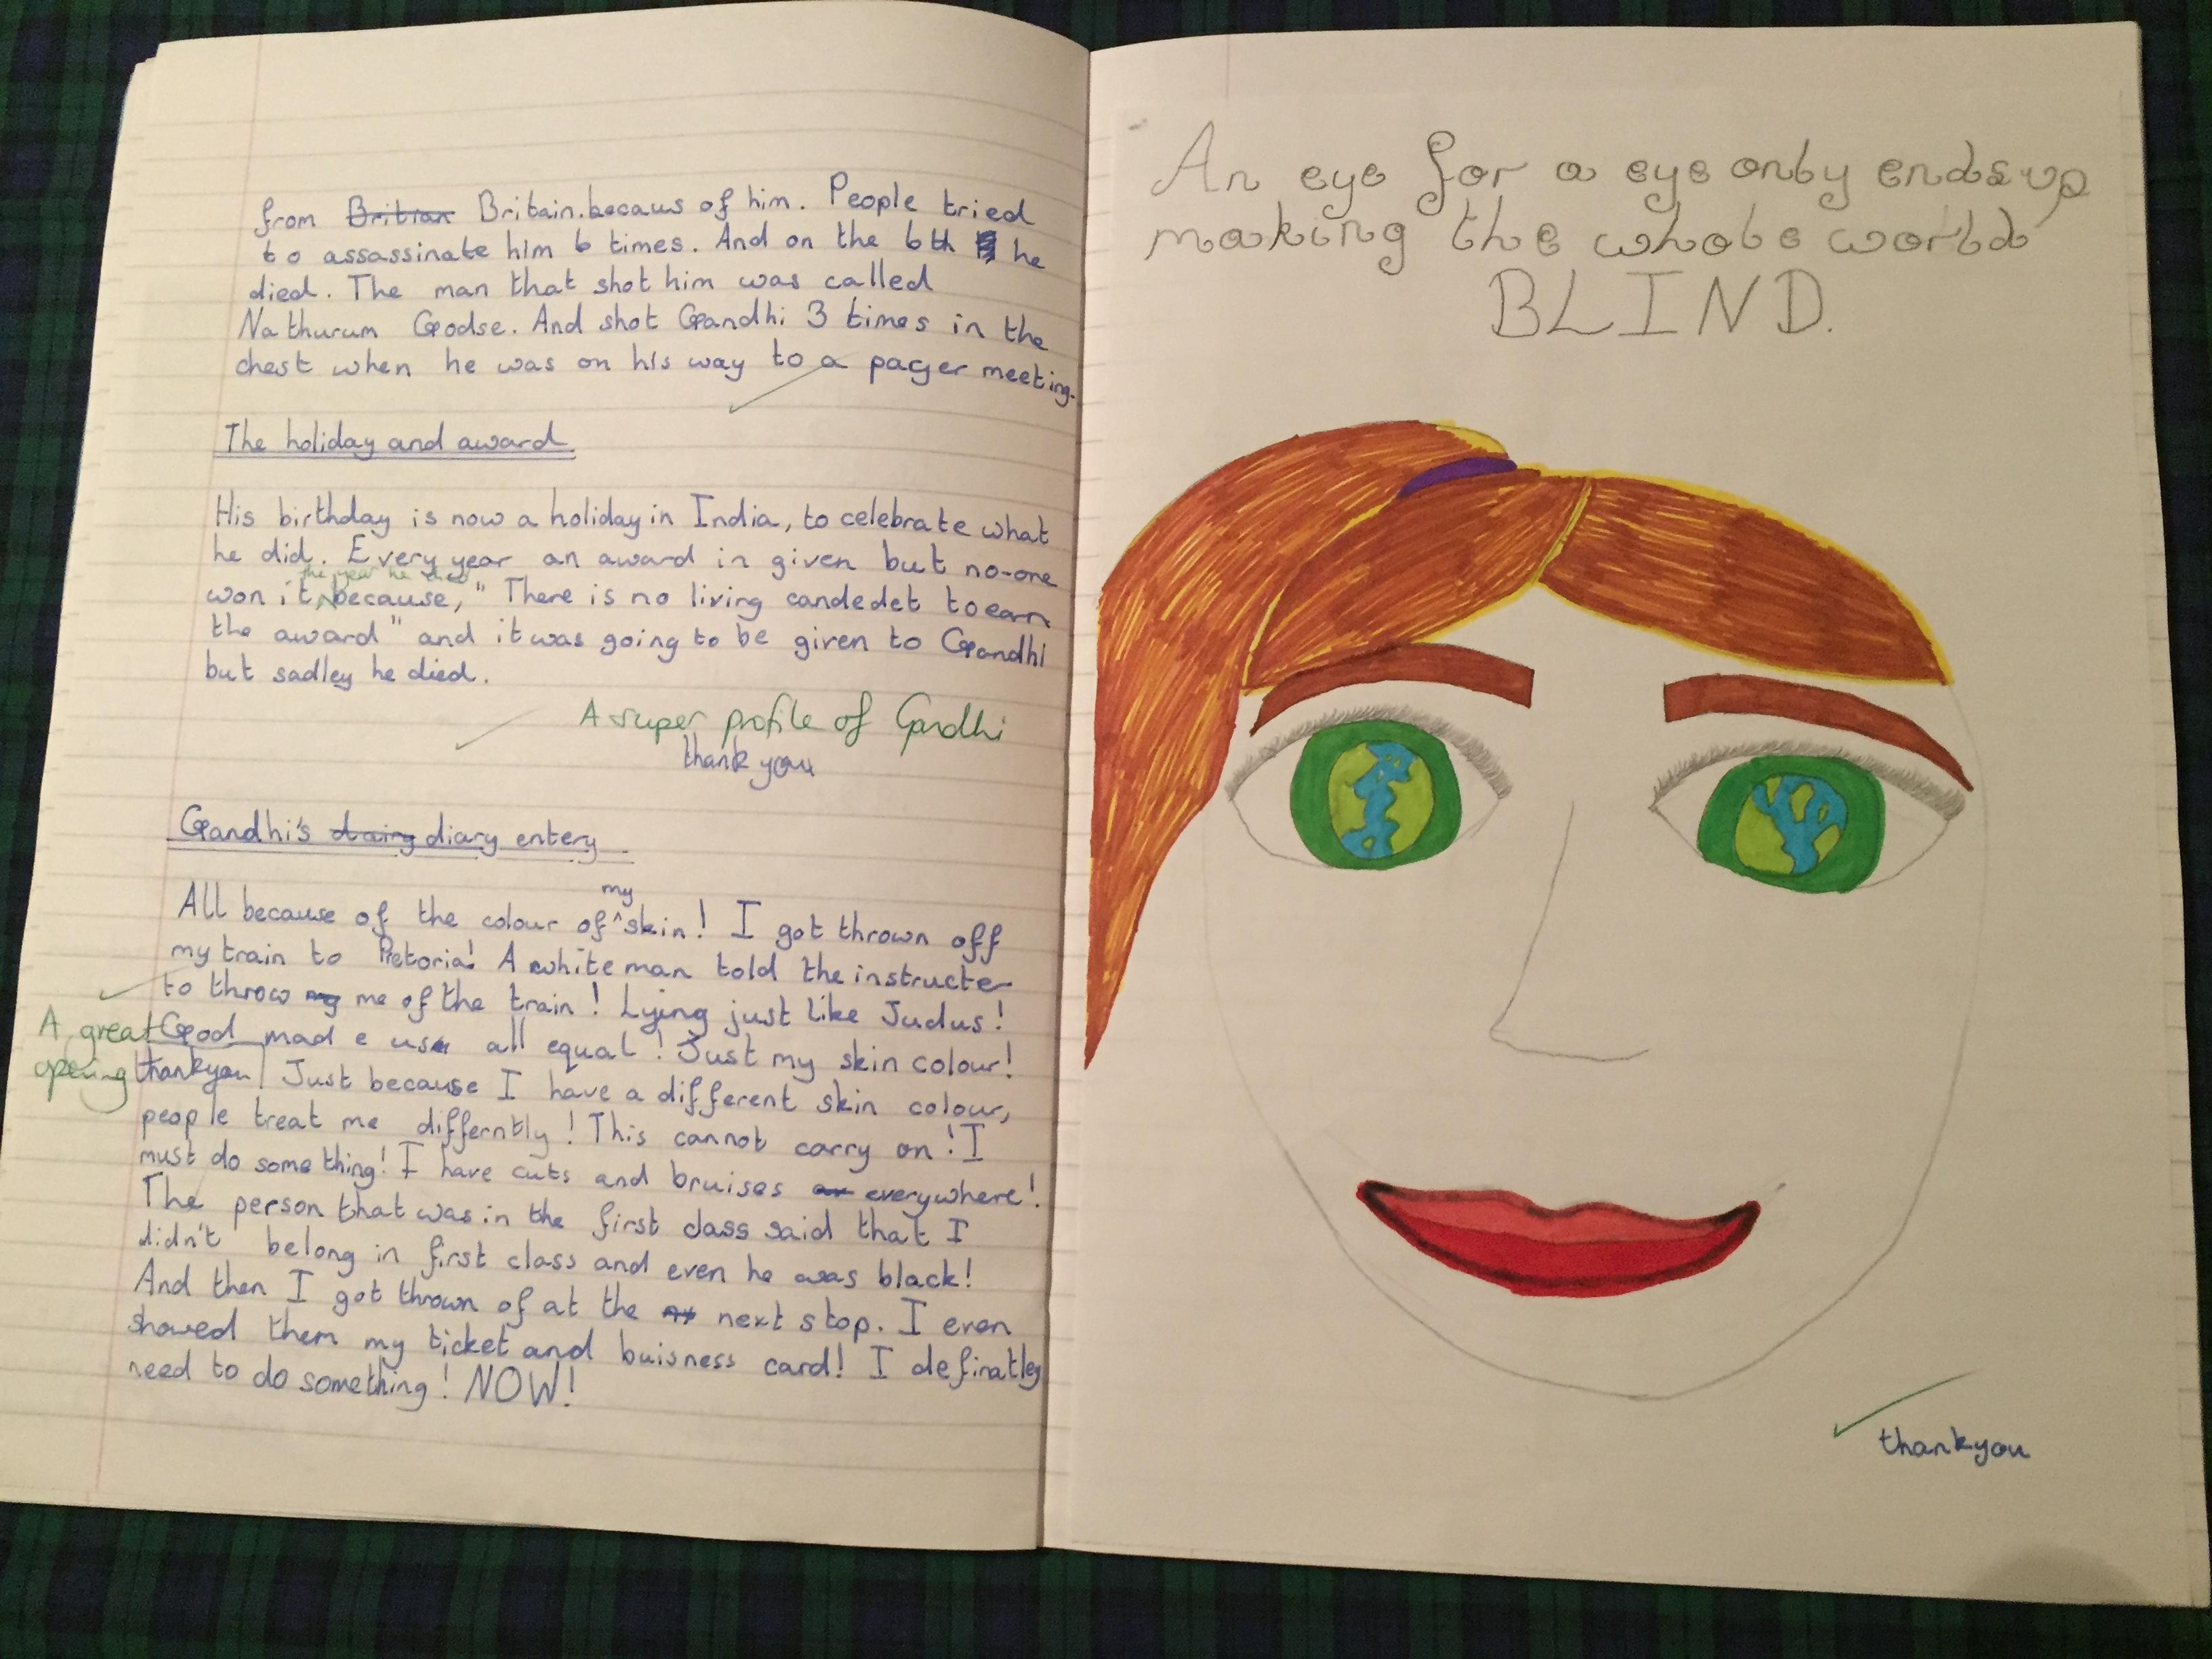 from Britian Britain.becaus of him. People tried
to assassinate him 6 times. And on the 6th he
died. The man that shot him was called
Nathurum Godse. And shot Gandhi 3 times in the
chest when he was on his way to a pager meeting.
The holiday and award
His birthday is now a holiday in India, to celebrate what
he did. Every year an award in given but no-one
the year he died
won it because, "There is no living candedet to earn
the award" and it was going to be given to Gandhi
but sadley he died.
A super profile of Gandhi
thank you
Gandhi's dairy diary entery
my
All because of the colour of ^ skin! I got thrown off
my train to Pretoria! A white man told the instructer
to throw my me of the train! Lying just like Judus!
A great
opening
God made us all equal! Just my skin colour!
thankyou Just because I have a different skin colour,
people treat me differntly! This cannot carry on! I
must do something! I have cuts and bruises everywhere!
The person that was in the first class said that I
didn't belong in first class and even he was black!
And then I got thrown of at the next stop. I even
showed them my ticket and buisness card! I definatley
need to do something! NOW!
An eye for a eye only ends up
making the whole world
BLIND.
thankyou